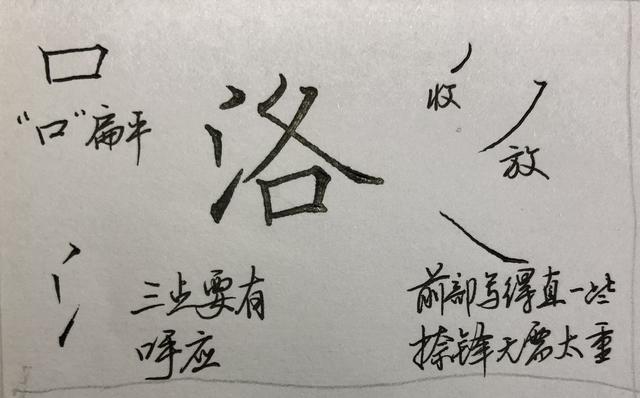 口
“口”扁平
洛
收
放
三点要有
呼应
前部写得直一些
捺锋无需太重